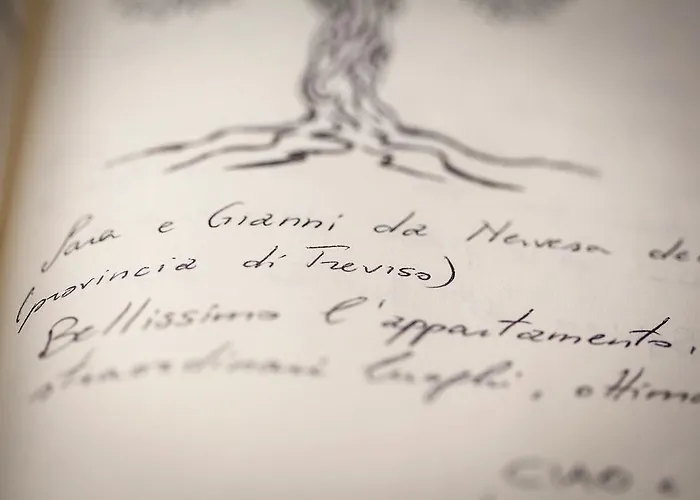 Sara e Gianni da Nervesa de
(provincia di Treviso)
Bellissimo l'appartamento,
straordinari luoghi, ottimo
CIAO